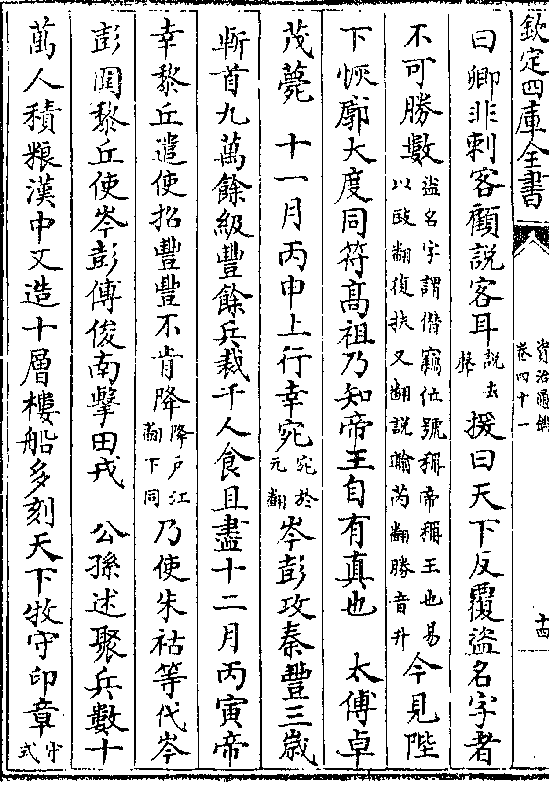 欽定四庫全書
資治通鑑
卷四十一
十四
曰卿非刺客顧説客耳説去聲援曰天下反覆盜名字者
不可勝數盜名字謂僭竊位號稱帝稱王也易以䜴翻復扶又翻説輸芮翻勝音升今見陛
下恢廓大度同符髙祖乃知帝王自有真也 太傅卓
茂薨 十一月丙申上行幸宛宛於元翻岑彭攻秦豐三嵗
斬首九萬餘級豐餘兵裁千人食且盡十二月丙寅帝
幸黎丘遣使招豐豐不肯降降户江翻下同乃使朱祜等代岑
彭圍黎丘使岑彭傅俊南擊田戎 公孫述聚兵數十
萬人積糧漢中又造十層樓船多刻天下牧守印章守式